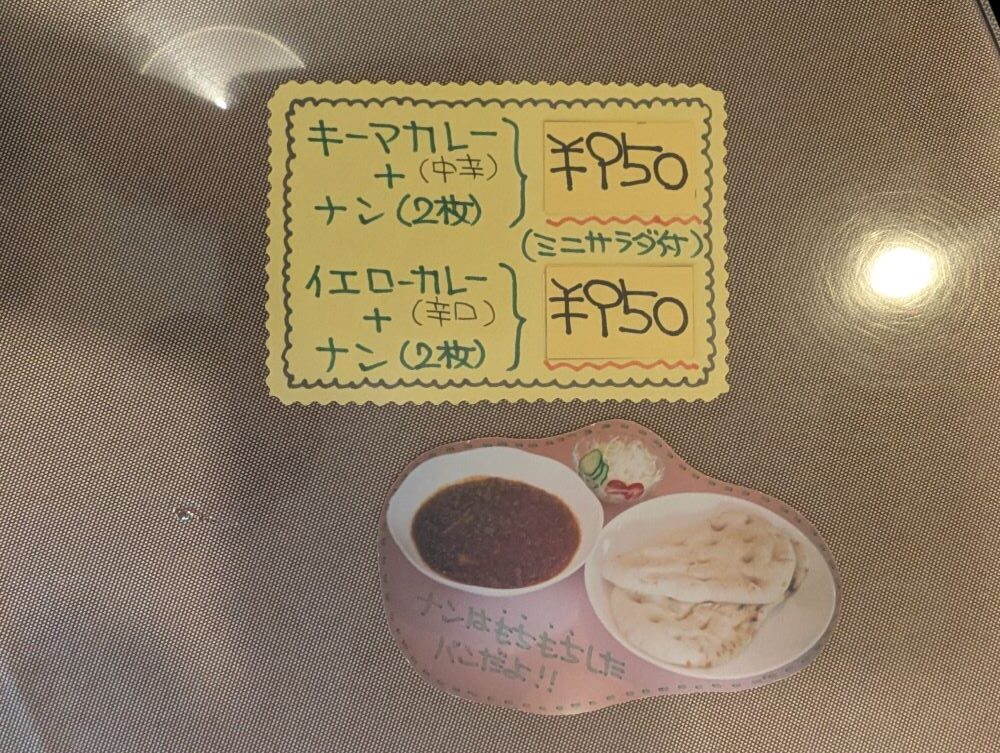 キーマカレー
+（中辛）
ナン（2枚）
¥950
（ミニサラダ付）
イエローカレー
+（辛口）
ナン（2枚）
¥950
ナンはもちもちした
パンだよ!!